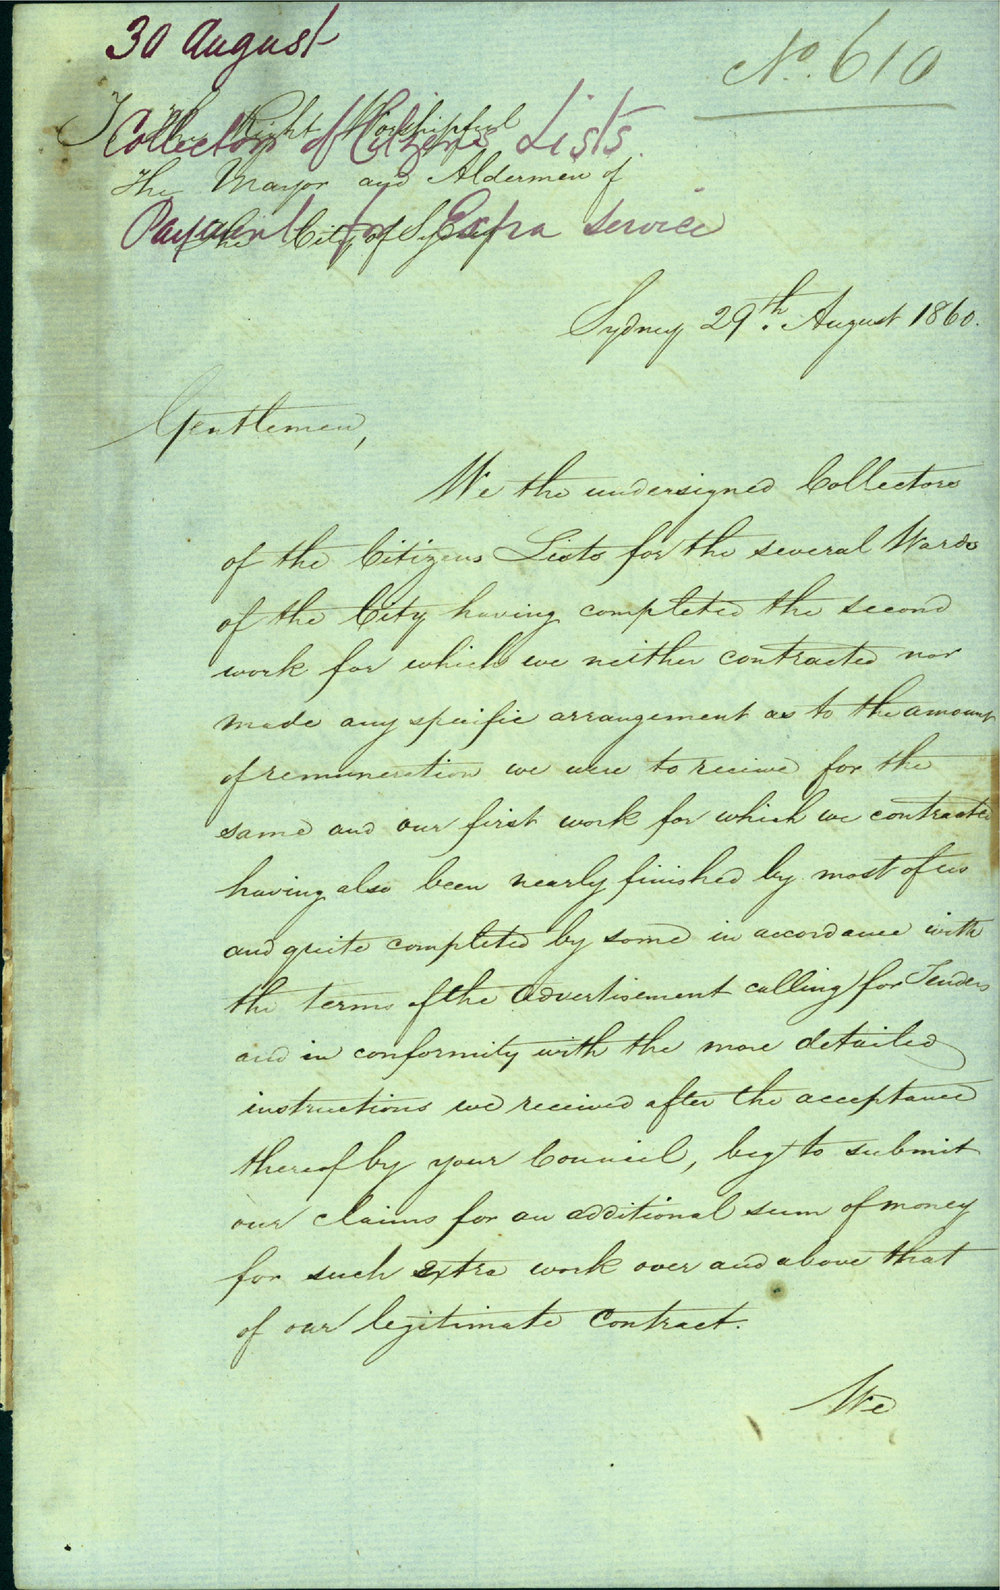 30 August
No. 610
To the Right Worshipful
Collectors of Citizens Lists
The Mayor and Aldermen of
Payment for Extra Service
the City of Sydney
Sydney 29th. August 1860.
Gentlemen,
We the undersigned Collectors
of the Citizens Lists for the several Wards
of the City having completed the second
work for which we neither contracted nor
made any specific arrangement as to the amount
of remuneration we were to receive for the
same and our first work for which we contracted
having also been nearly finished by most of us
and quite completed by some in accordance with
the terms of the advertisement calling for Tenders
and in conformity with the more detailed
instructions we received after the acceptance
thereof by your Council, beg to submit
our claims for an additional sum of money
for such extra work over and above that
of our legitimate contract.
We